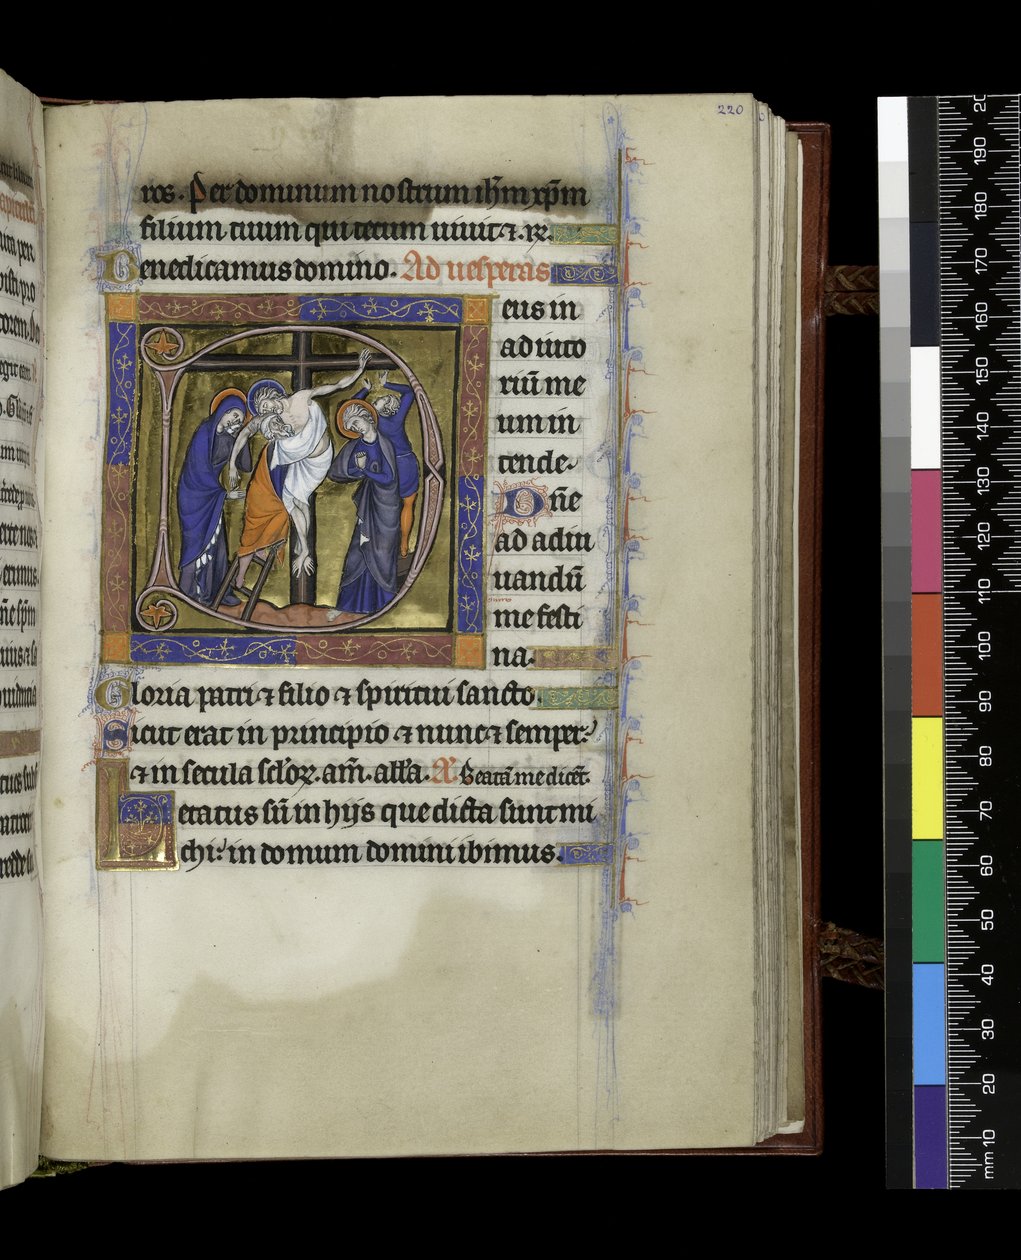 220
ros. Per dominum nostrum ih̄m xp̄m
filium tuum qui tecum uiuit ⁊. R̄.
Benedicamus domino. Ad uesperas
eus in
adiuto
riū me
um in
tende.
Dn̄e
ad adiu
uandū
me festi
na.
Gloria patri ⁊ filio ⁊ spiritui sancto.
Sicut erat in principio ⁊ nunc ⁊ semper:
⁊ in secula sc̄loꝝ. am̄. all'a. A͞. Beatā me dicēt.
Letatus sū in hijs que dicta sunt mi
chi: in domum domini ibimus.
20
190
180
170
160
150
140
130
120
110
100
90
80
70
60
50
40
30
20
mm 10